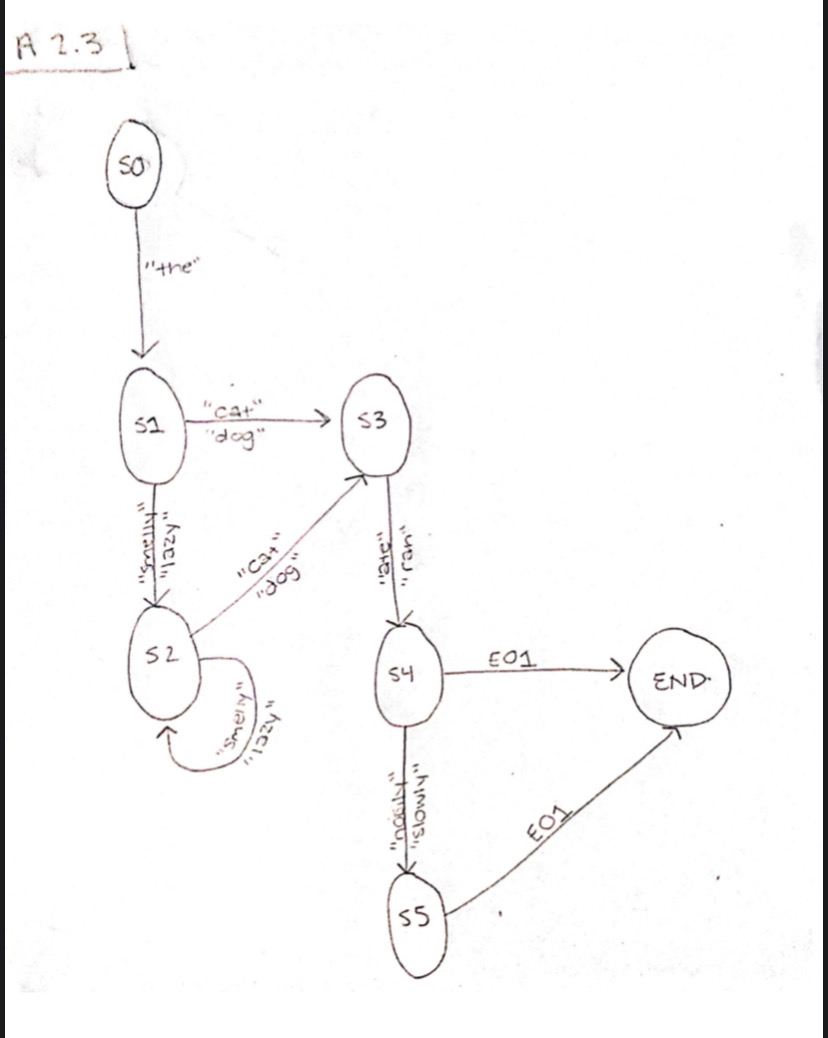 A 2.3
S0
"the"
S1
"cat"
"dog"
S3
"smelly"
"lazy"
"cat"
"dog"
"ate"
"ran"
S2
"smelly"
"lazy"
S4
EO1
END
"nosily"
"slowly"
EO1
S5